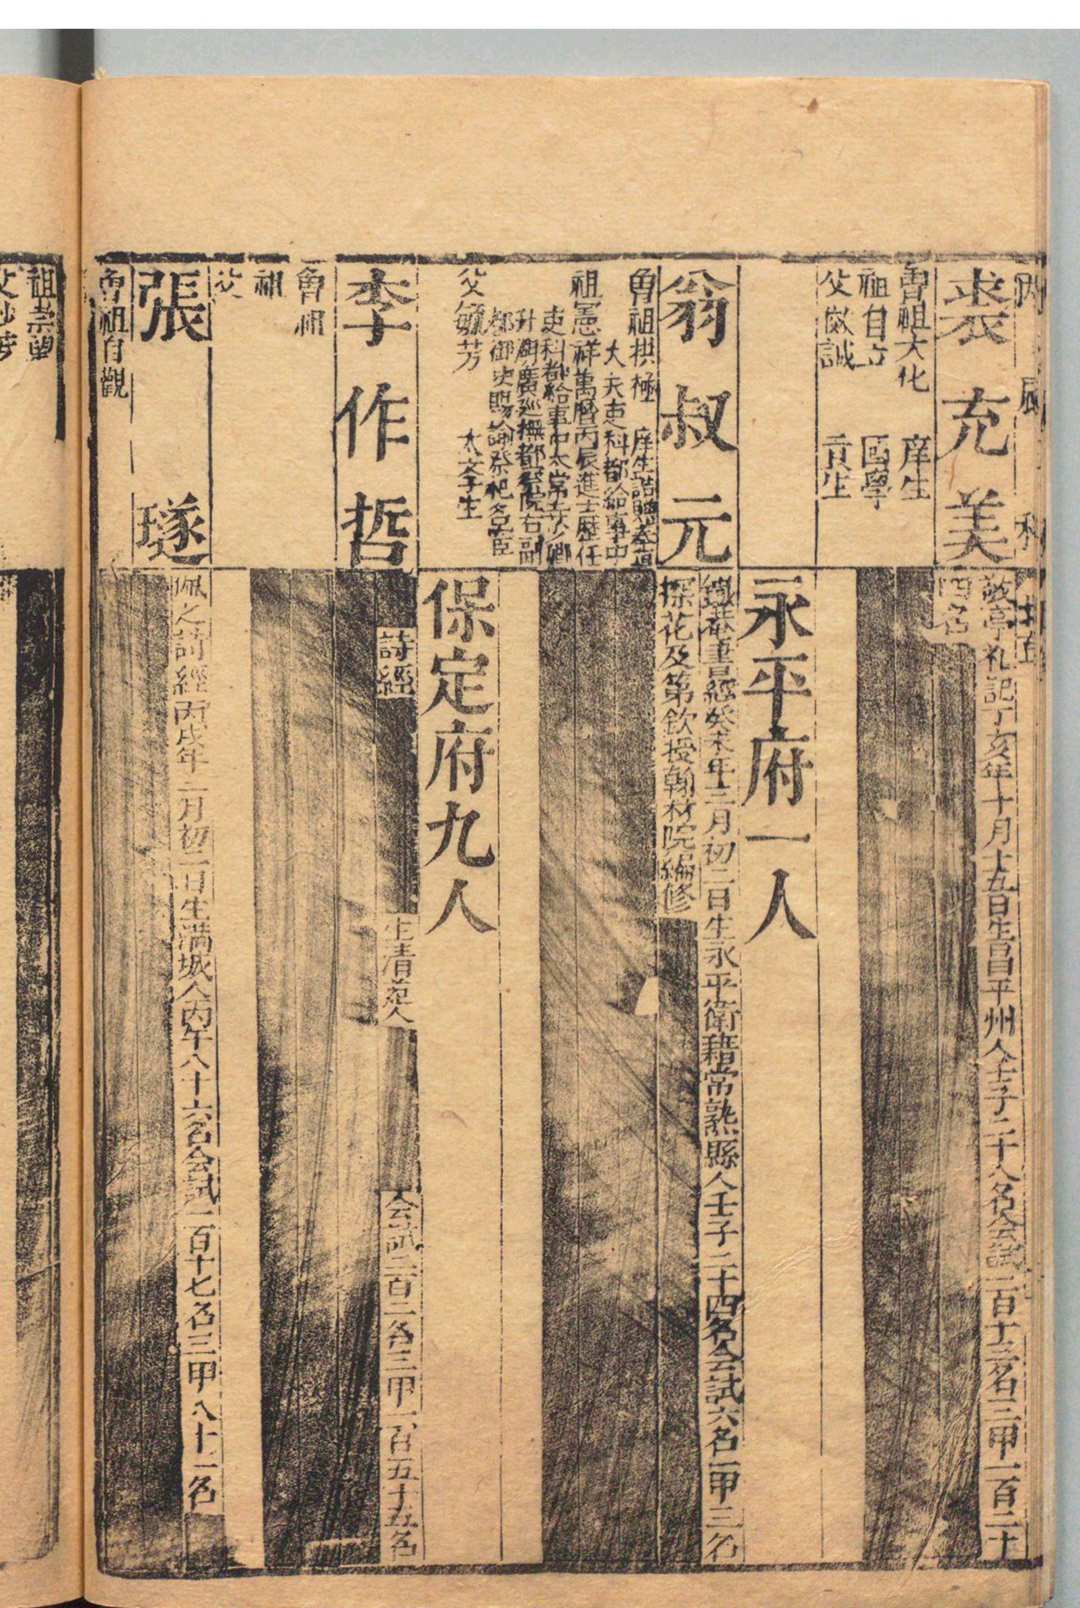 裘充美
敬亭礼記丁亥年十月十五日生昌平州人壬子二十八名会試一百十三名三甲一百二十
四名
曾祖大化 庠生
祖自立 国學
父俶誠 貢生
永平府一人
翁叔元
鐵菴書經癸未年二月初二日生永平衛籍常熟縣人壬子二十四名会試六名一甲三名
探花及第欽授翰林院編修
曾祖拱極 庠生誥贈奉直
大夫吏科都給事中
祖憲祥萬曆丙辰進士歷任
吏科都給事中太常寺少卿
升湖廣巡撫都察院右副
都御史賜諭祭祀名臣
父毓芳 太学生
保定府九人
李作哲
詩經 生清苑人 会試二百二名三甲一百五十五名
曾祖
祖
父
張璲
佩之詩經丙戌年二月初二日生满城人丙午八十六名会試一百十七名三甲八十一名
曾祖自觀
祖崇望